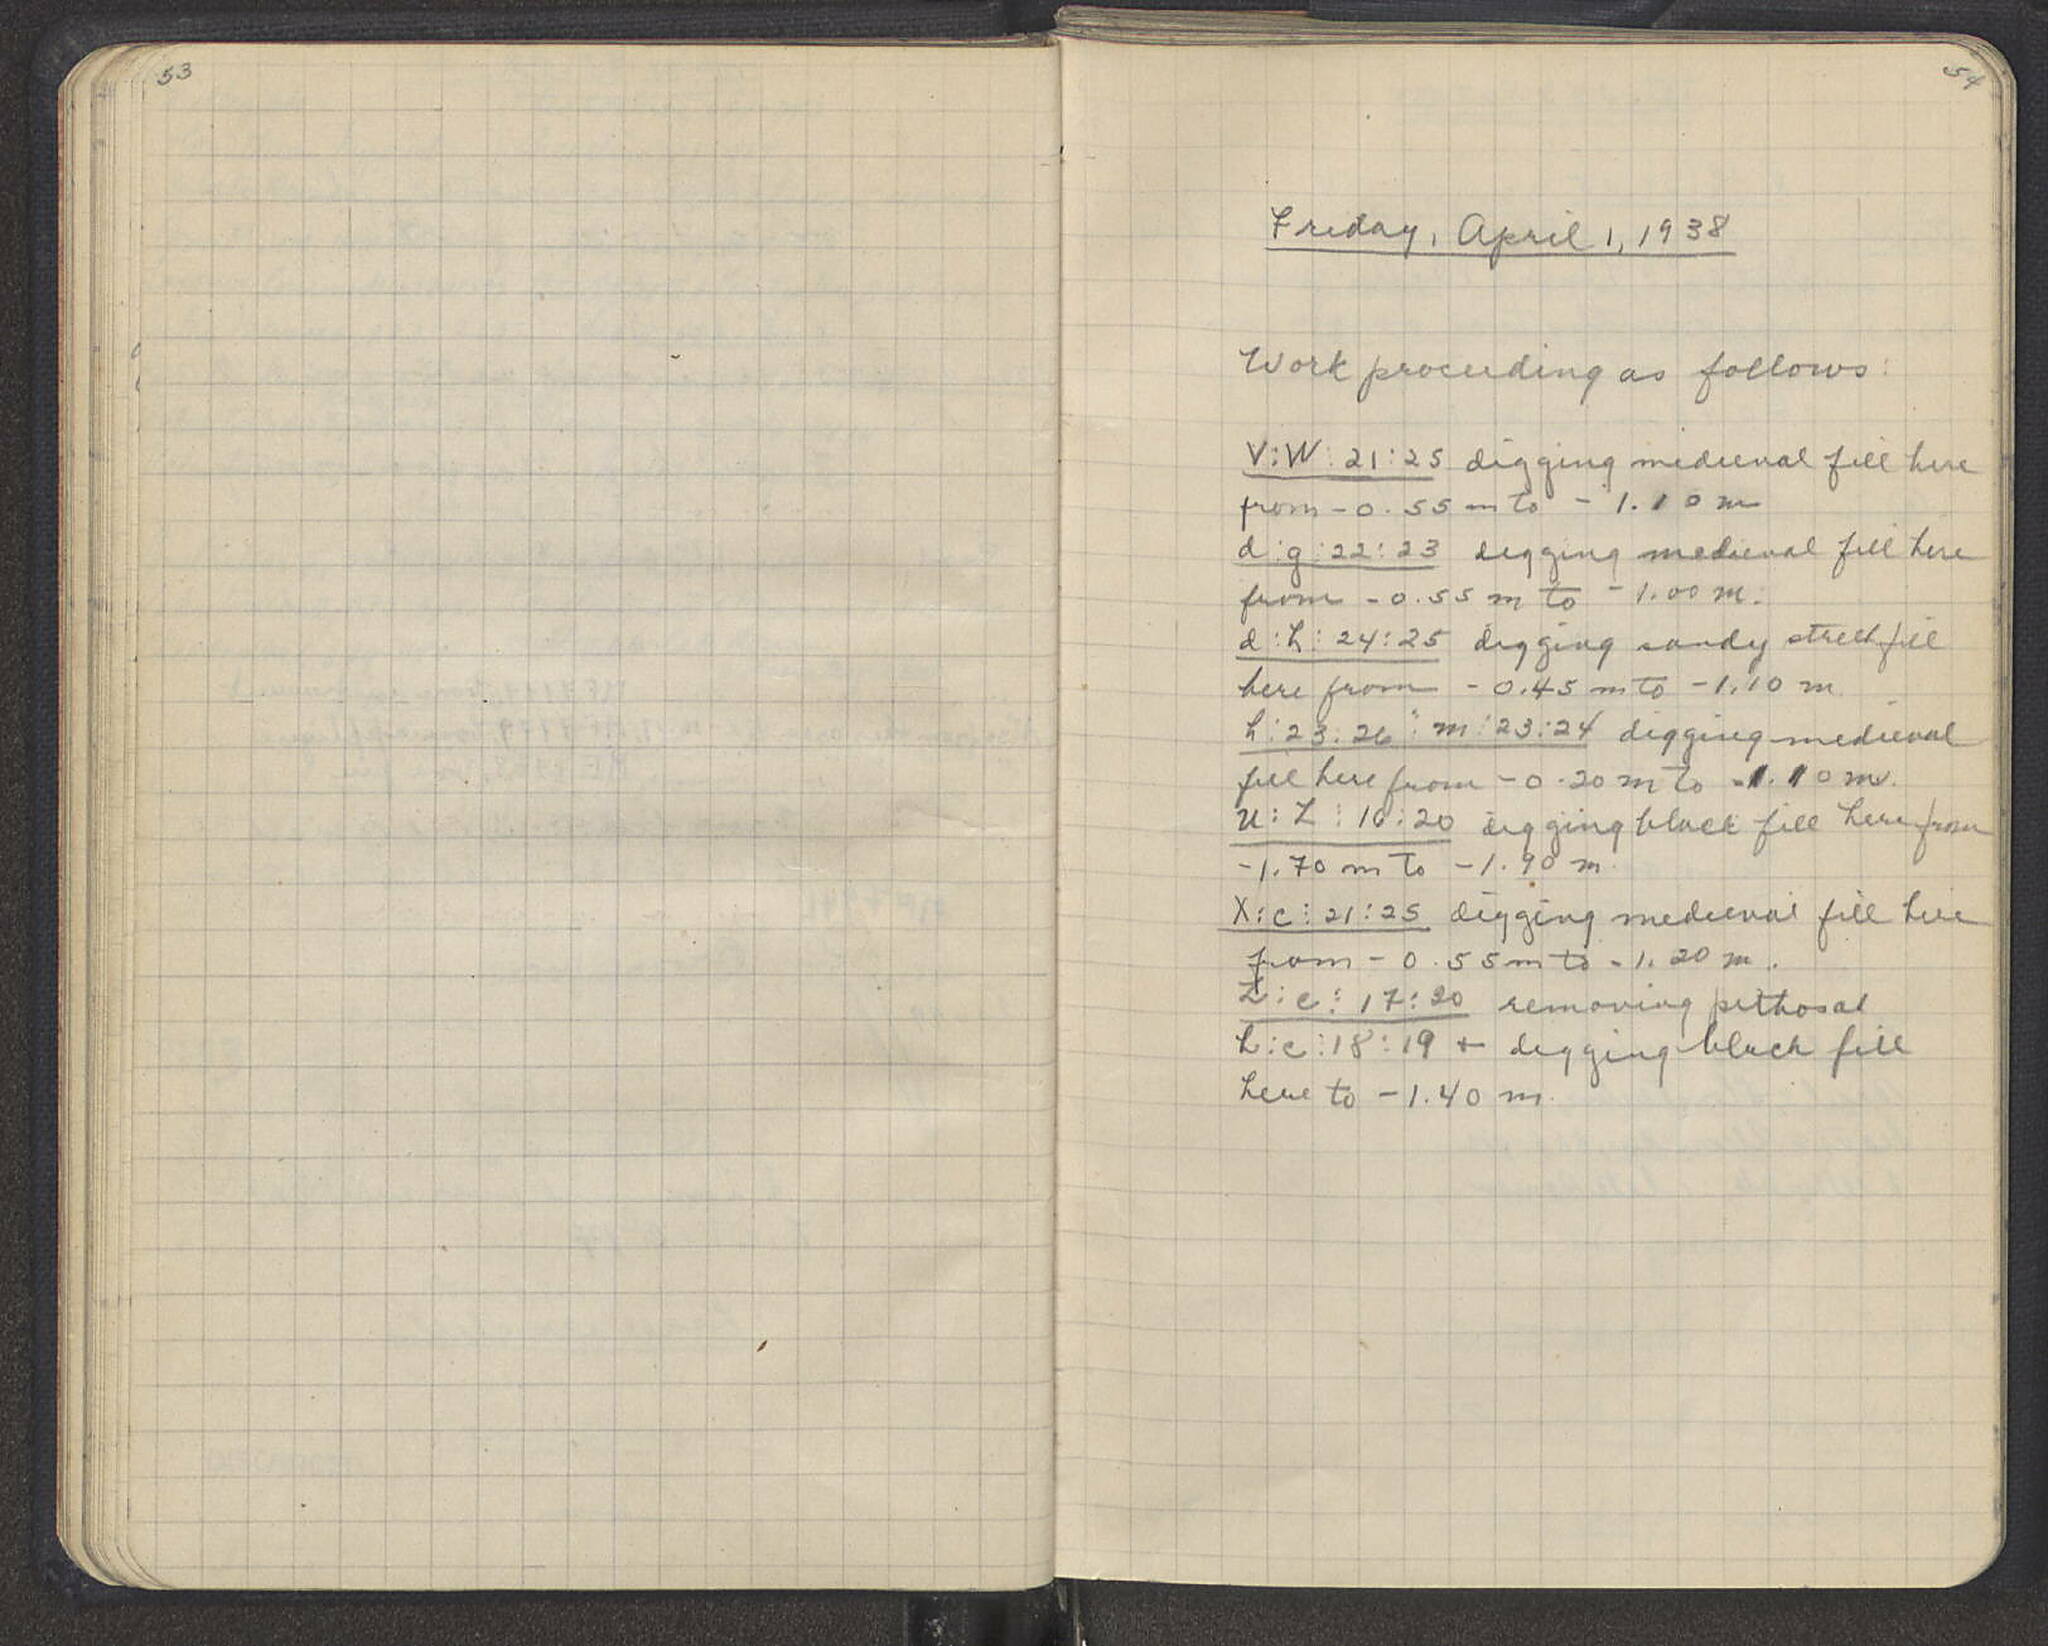 53
54
Friday, April 1, 1938
Work proceeding as follows:
V:W:21:25 digging medieval fill here
from -0.55 m to -1.10 m
d:g:22:23 digging medieval fill here
from -0.55 m to -1.00 m.
d:h:24:25 digging sandy street fill
here from -0.45 m to -1.10 m
h:23:26 : m:23:24 digging medieval
fill here from -0.20 m to -1.10 m.
u:Z:16:20 digging black fill here from
-1.70 m to -1.90 m.
X:c:21:25 digging medieval fill here
from -0.55 m to -1.20 m.
Z:c:17:20 removing pithos at
b:c:18:19 + digging black fill
here to -1.40 m.